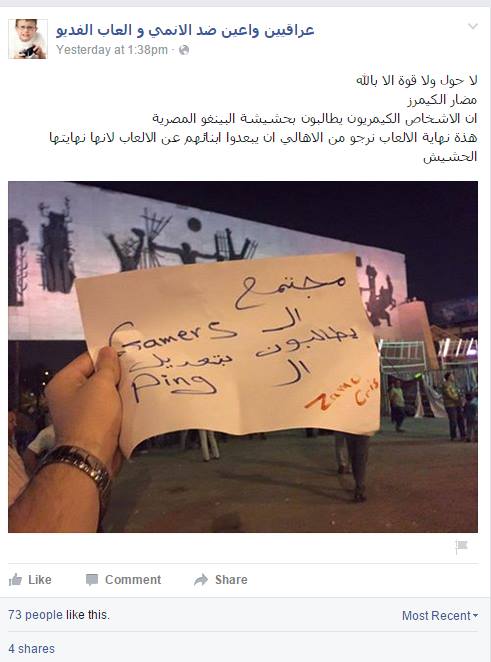 عراقيين واعين ضد الانمي و العاب الفديو
Yesterday at 1:38pm
لا حول ولا قوة الا بالله
مضار الكيمرز
ان الاشخاص الكيمريون يطالبون بحشيشة البينغو المصرية
هذة نهاية الالعاب نرجو من الاهالي ان يبعدوا ابنائهم عن الالعاب لانها نهايتها
الحشيش
مجتمع
ال Gamers
يطالبون بتعديل
ال Ping
Zame
Cris
Like Comment Share
73 people like this. Most Recent
4 shares